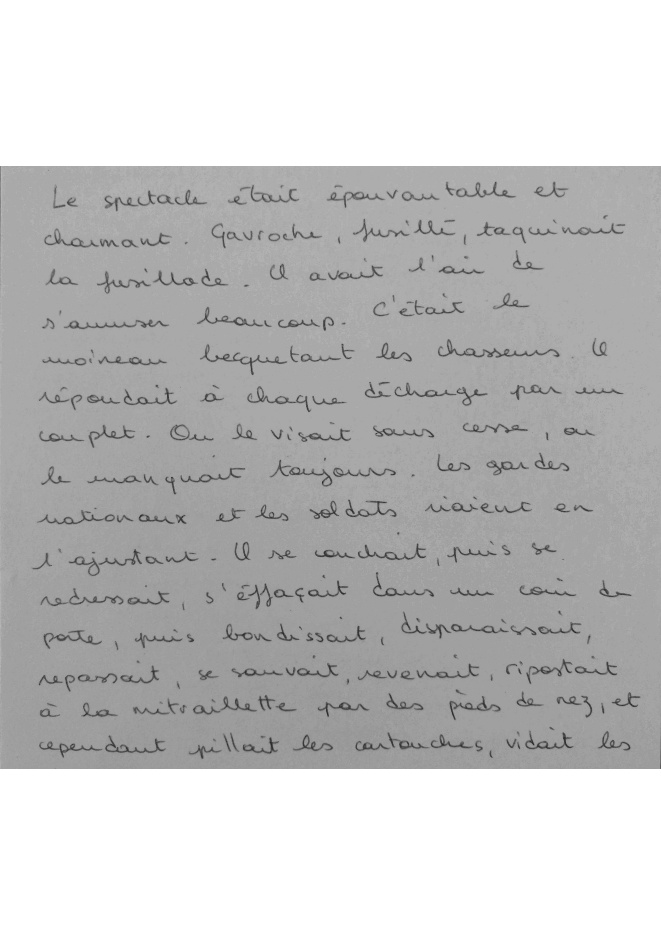 Le spectacle était épouvantable et
charmant. Gavroche, fusillé, taquinait
la fusillade. Il avait l'air de
s'amuser beaucoup. C'était le
moineau becquetant les chasseurs. Il
répondait à chaque décharge par un
couplet. On le visait sans cesse, on
le manquait toujours. Les gardes
nationaux et les soldats riaient en
l'ajustant. Il se couchait, puis se
redressait, s'éffaçait dans un coin de
porte, puis bondissait, disparaissait,
repassait, se sauvait, revenait, ripostait
à la mitraillette par des pieds de nez, et
cependant pillait les cartouches, vidait les